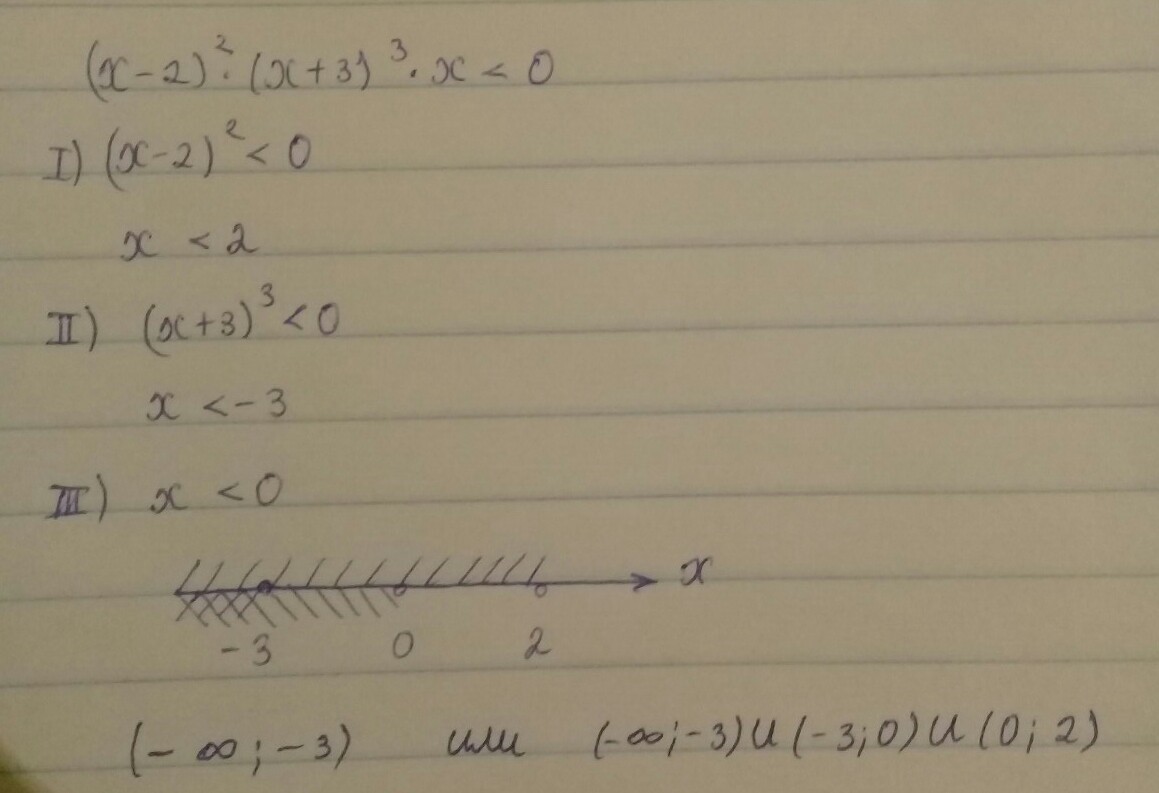 (x-2)²·(x+3)³·x < 0
I) (x-2)² < 0
x < 2
II) (x+3)³ < 0
x < -3
III) x < 0
x
-3 0 2
(-∞; -3) или (-∞; -3) U (-3; 0) U (0; 2)